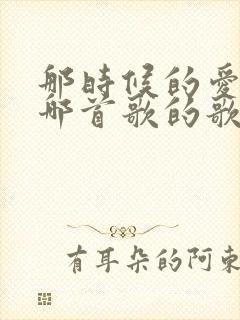 那時候的愛
那首歌的歌
有耳朵的阿東